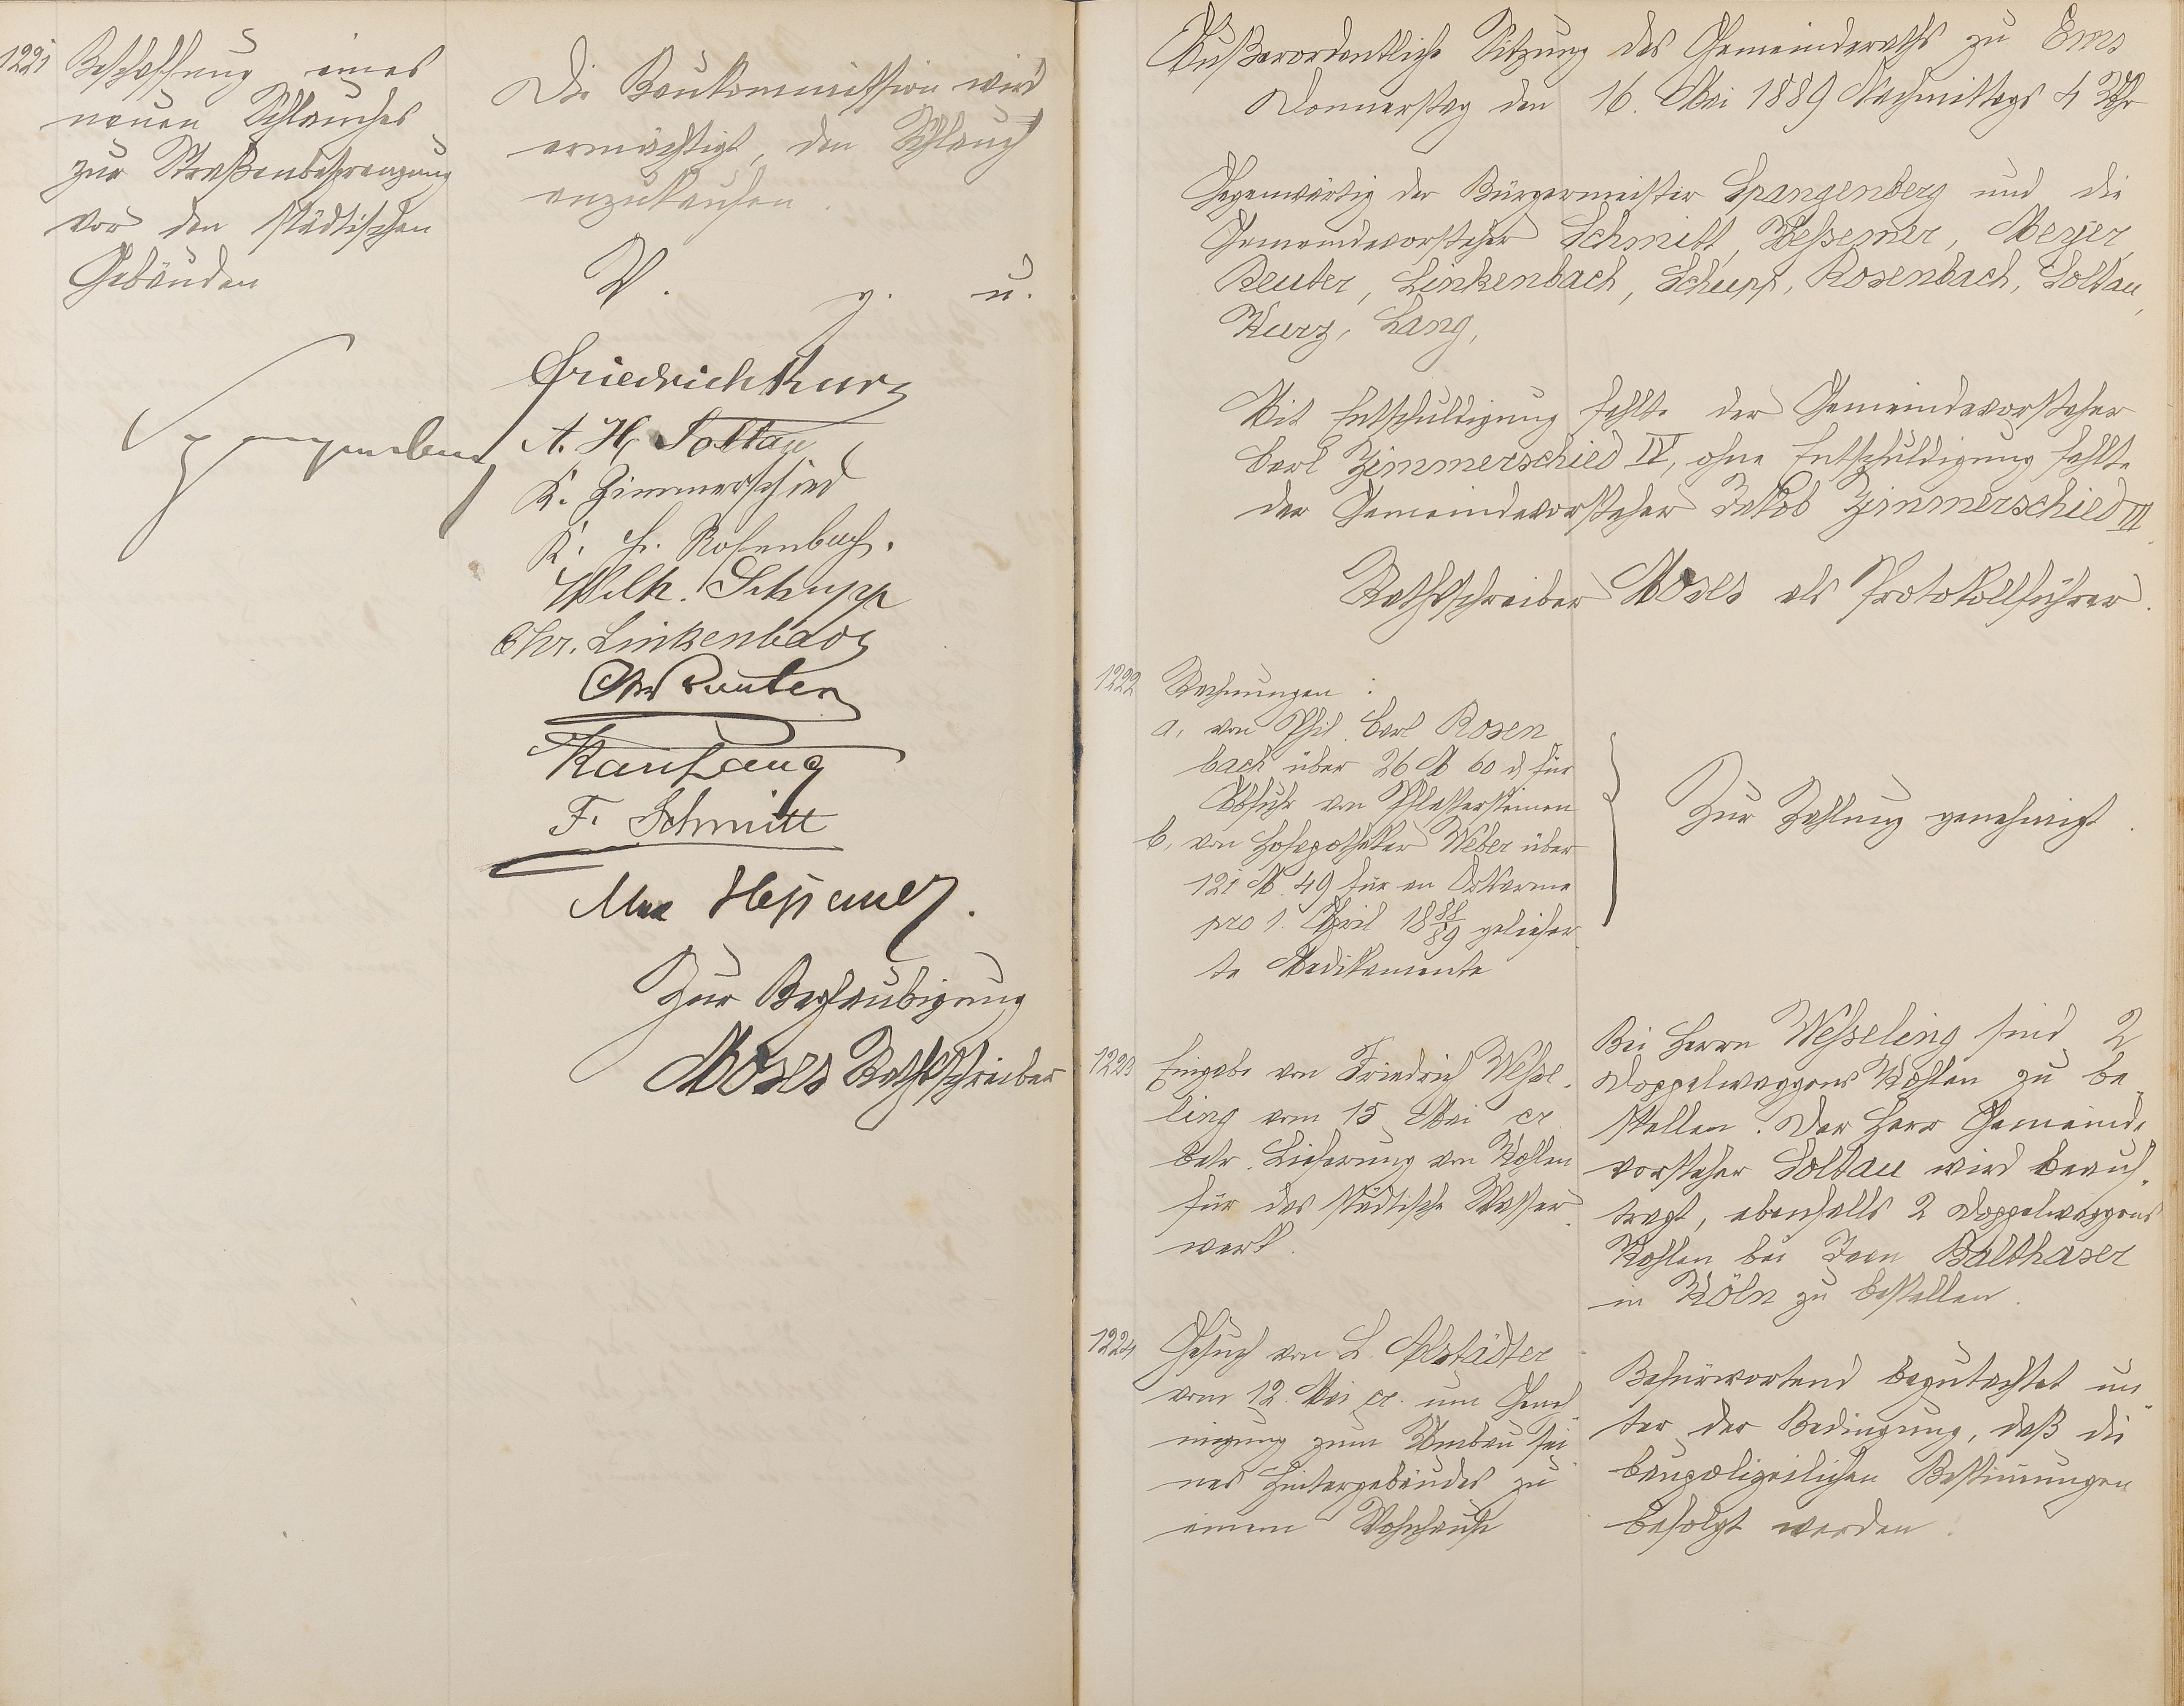 1221 Beschaffung eines
neuen Schlauches
zur Straßenbesprengung
vor den städtischen
Gebäuden
Die Baukommission wird
ermächtigt, den Schlauch
anzukaufen.
V. g. u.
Spangenberg
Friedrich Kurz
A. H. Soltau
K. Zimmerschied
K. Rosenbach.
Wilh. Schupp
Chr. Linkenbach
Reuter
Karl Lang
F. Schmitt
Max Heßemer.
Zur Beglaubigung
Moses Rathsschreiber
Außerordentliche Sitzung des Gemeinderaths zu Ems
Donnerstag den 16. Mai 1889 Nachmittags 4 Uhr
Gegenwärtig der Bürgermeister Spangenberg und die
Gemeindevorsteher Schmitt, Heßemer, Meyer,
Reuter, Linkenbach, Schupp, Rosenbach, Soltau,
Kurz, Lang,
Mit Entschuldigung fehlte der Gemeindevorsteher
Carl Zimmerschied IV, ohne Entschuldigung fehlte
der Gemeindevorsteher Jakob Zimmerschied III.
Rathsschreiber Moses als Protokollführer.
1222 Rechnungen:
a, von Phil. Carl Rosen
bach über 26 M 60 d für
Abfuhr von Pflastersteinen
b, von Hofapotheker Weber über
121 M. 49 für an Ortsarme
pro 1. April 18 88/89 geliefer
te Medikamente
Zur Zahlung genehmigt.
1223 Eingabe von Friedrich Weße-
ling vom 15 Mai cr.
betr. Lieferung von Kohlen
für das städtische Wasser
werk.
Bei Herrn Weßeling sind 2
Doppelwaggons Kohlen zu be
stellen. Der Herr Gemeinde
vorsteher Soltau wird beauf-
tragt, ebenfalls 2 Doppelwaggons
Kohlen bei Balthaser
in Köln zu bestellen.
1224 Gesuch von L.
vom 12. Mai cr. um Geneh
migung zum Umbau sei
nes Hintergebäudes zu
einem Wohnhause
Befürwortend begutachtet un
ter der Bedingung, daß die
baupolizeilichen Bestimmungen
befolgt werden.